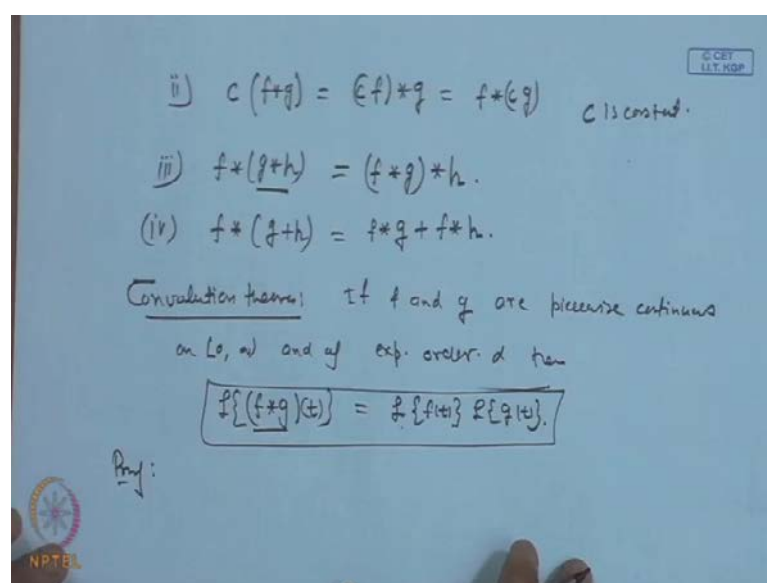 © CET
I.I.T. KGP
ii) c (f*g) = (cf)*g = f*(cg) c is constant.
iii) f*(g*h) = (f*g)*h.
(iv) f*(g+h) = f*g + f*h.
Convolution theorem: If f and g are piecewise continuous
on [0, ∞) and of exp. order α then
£{(f*g)(t)} = £{f(t)} £{g(t)}.
Proof:
NPTEL